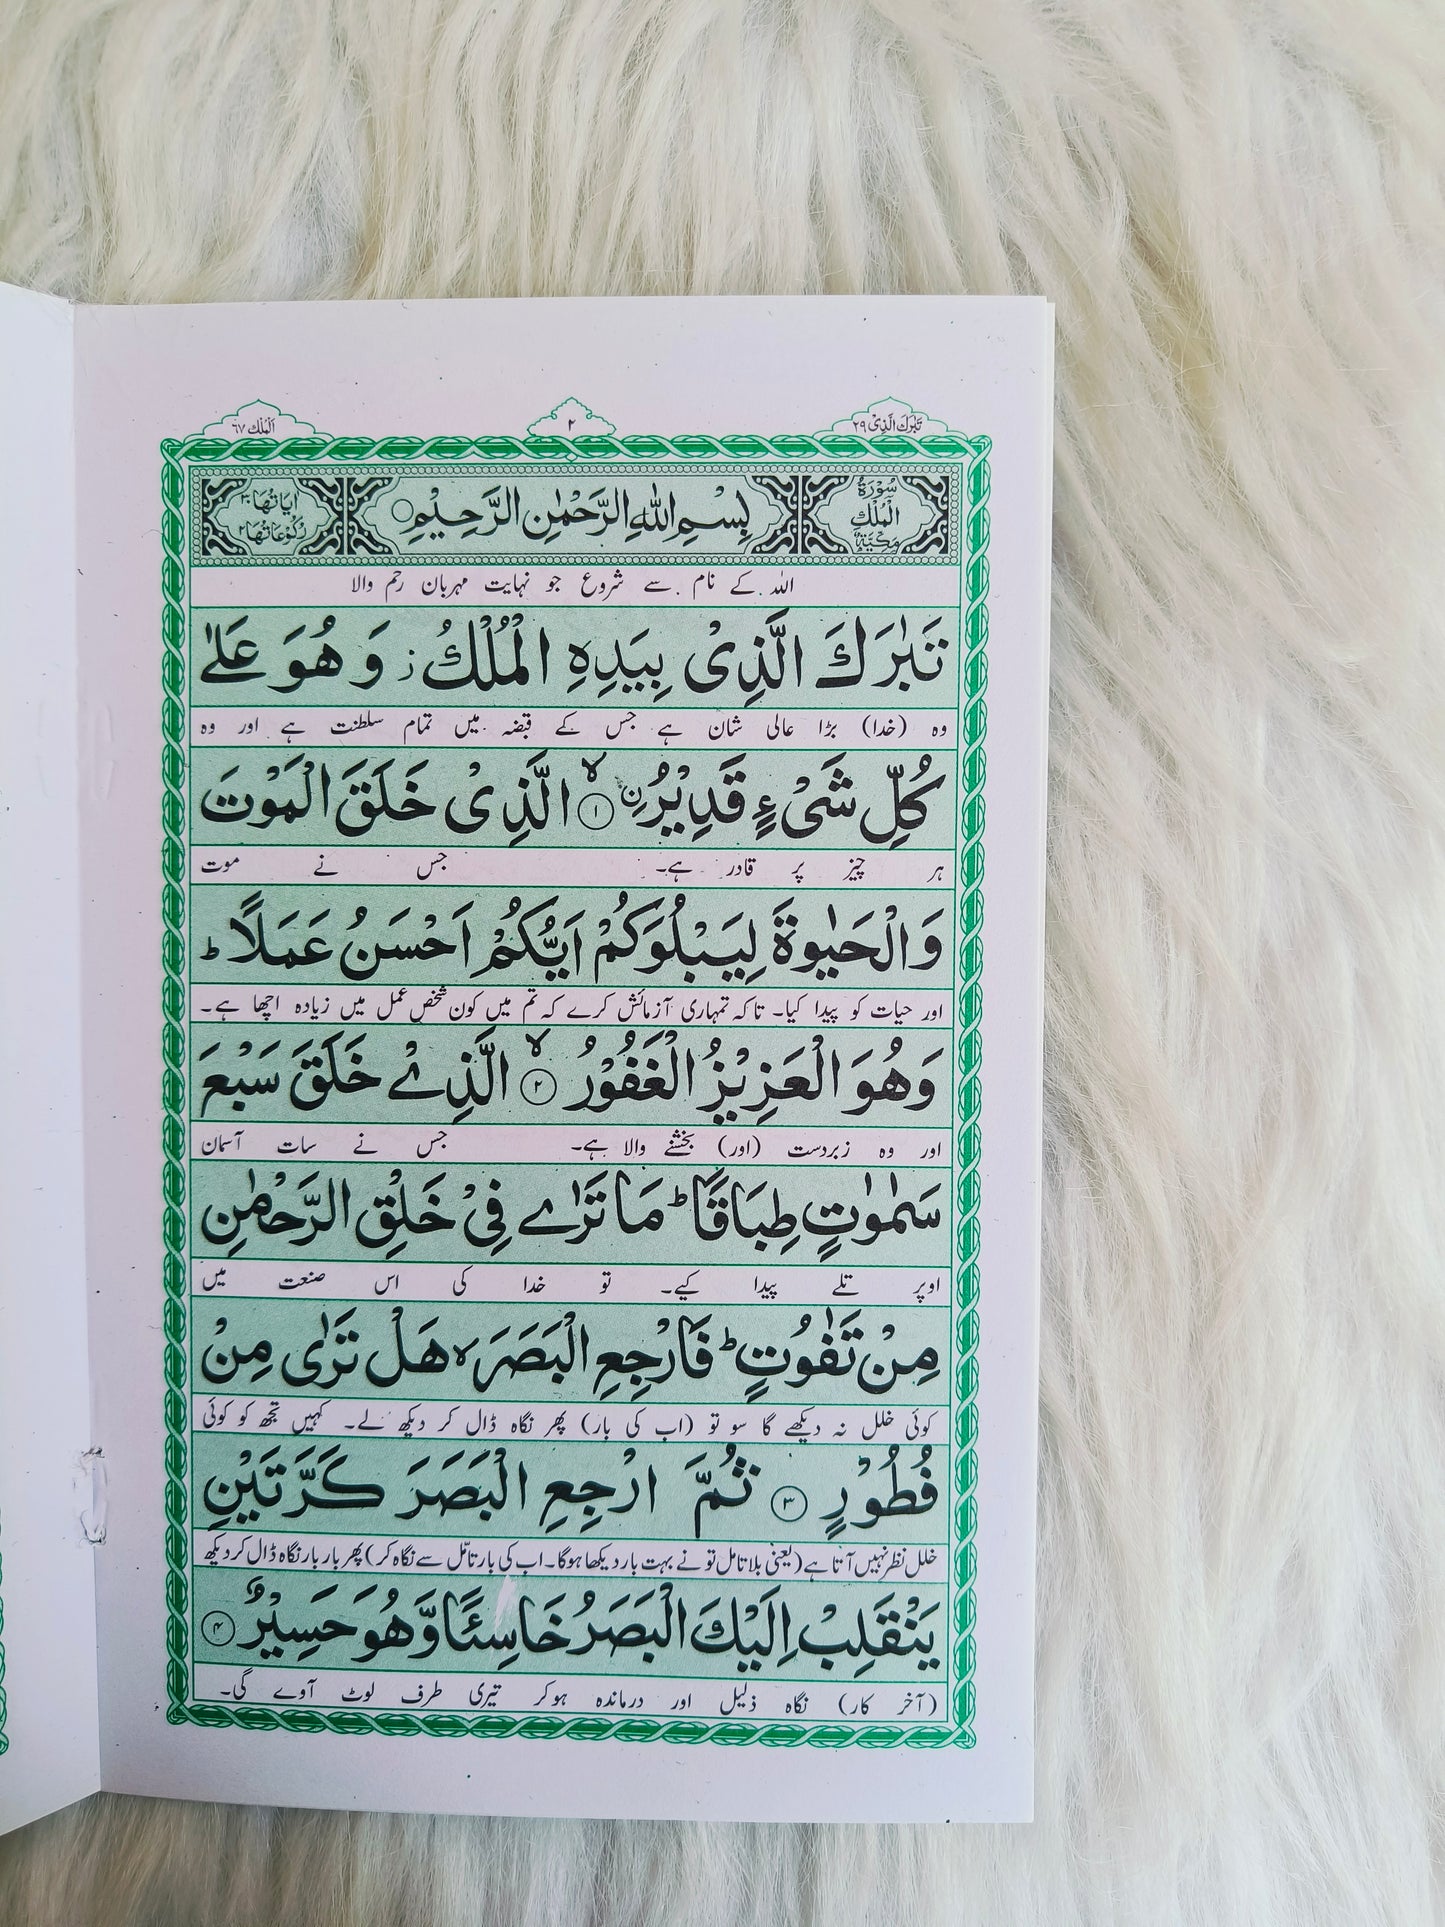 تَبٰرَكَ الَّذِىْ ٢٩
٢
اَلْمُلْك ٦٧
سُوْرَةُ الْمُلْكِ مَكِّيَّةٌ
بِسْمِ اللّٰهِ الرَّحْمٰنِ الرَّحِيْمِ
اٰيَاتُهَا ٣٠
رُكُوْعَاتُهَا ٢
اللہ کے نام سے شروع جو نہایت مہربان رحم والا
تَبٰرَكَ الَّذِىْ بِيَدِهِ الْمُلْكُ ز وَ هُوَ عَلٰى
وہ (خدا) بڑا عالی شان ہے جس کے قبضہ میں تمام سلطنت ہے اور وہ
كُلِّ شَىْءٍ قَدِيْرُ ۨ ۙ ١ الَّذِىْ خَلَقَ الْمَوْتَ
ہر چیز پر قادر ہے۔ جس نے موت
وَالْحَيٰوةَ لِيَبْلُوَكُمْ اَيُّكُمْ اَحْسَنُ عَمَلًا ؕ
اور حیات کو پیدا کیا۔ تاکہ تمہاری آزمائش کرے کہ تم میں کون شخص عمل میں زیادہ اچھا ہے۔
وَهُوَ الْعَزِيْزُ الْغَفُوْرُ ۙ ٢ الَّذِىْ خَلَقَ سَبْعَ
اور وہ زبردست (اور) بخشنے والا ہے۔ جس نے سات آسمان
سَمٰوٰتٍ طِبَاقًا ؕ مَا تَرٰى فِىْ خَلْقِ الرَّحْمٰنِ
اوپر تلے پیدا کیے۔ تو خدا کی اس صنعت میں
مِنْ تَفٰوُتٍ ؕ فَارْجِعِ الْبَصَرَ ۙ هَلْ تَرٰى مِنْ
کوئی خلل نہ دیکھے گا سو تو (اب کی بار) پھر نگاہ ڈال کر دیکھ لے۔ کہیں تجھ کو کوئی
فُطُوْرٍ ٣ ثُمَّ ارْجِعِ الْبَصَرَ كَرَّتَيْنِ
خلل نظر نہیں آتا ہے (یعنی بلا تامل تو نے بہت بار دیکھا ہوگا۔ اب کی بار تامّل سے نگاہ کر) پھر بار بار نگاہ ڈال کر دیکھ
يَنْقَلِبْ اِلَيْكَ الْبَصَرُ خَاسِئًا وَّهُوَ حَسِيْرٌ ٤
(آخر کار) نگاہ ذلیل اور درماندہ ہوکر تیری طرف لوٹ آوے گی۔